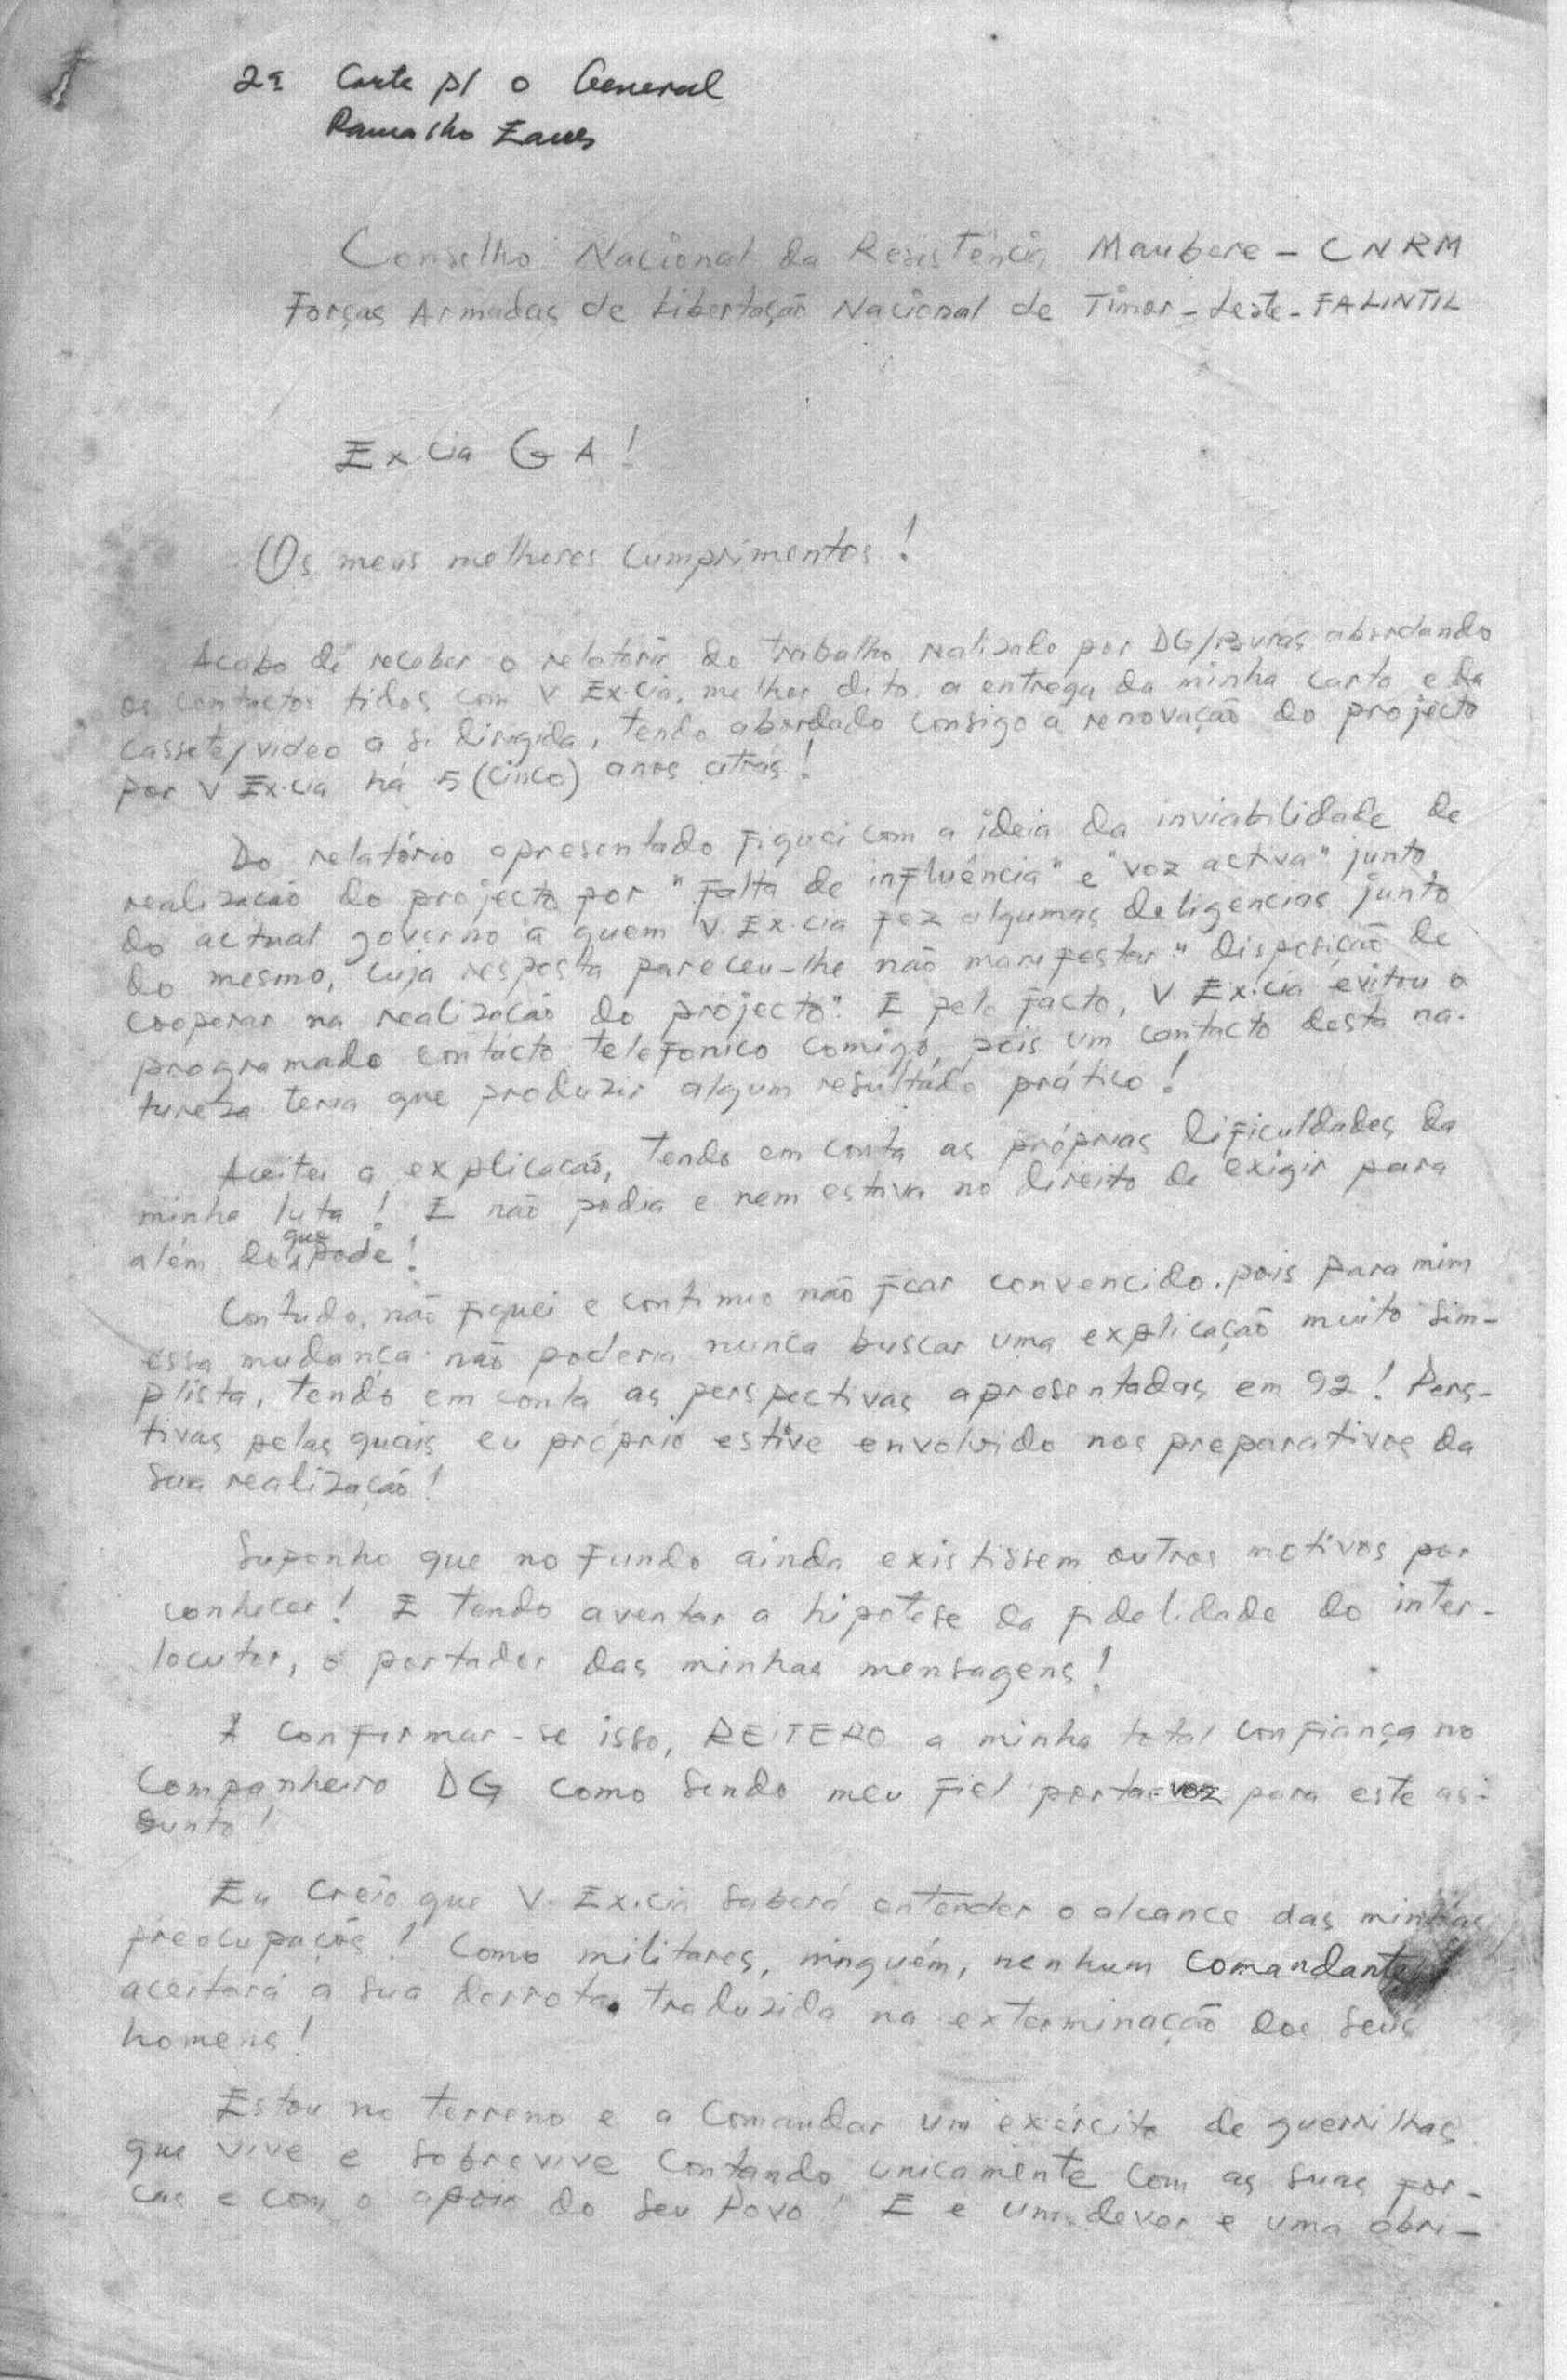 2ª Carta p/ o General
Ramalho Eanes
Conselho Nacional da Resistência Maubere - CNRM
Forças Armadas de Libertação Nacional de Timor-Leste - FALINTIL
Ex.cia G A!
Os meus melhores cumprimentos!
Acabo de receber o relatório do trabalho realizado por DG/Buras abordando
os contactos tidos com V Ex.cia. melhor dito. a entrega da minha carta e da
cassete/video a si dirigida, tendo abordado consigo a renovação do projecto
por V Ex.cia há 5 (cinco) anos atrás!
Do relatório apresentado fiquei com a ideia da inviabilidade de
realização do projecto por "falta de influência" e "voz activa" junto
do actual governo a quem V. Ex.cia fez algumas deligencias junto
do mesmo, cuja resposta pareceu-lhe não manifestar "disposição de
cooperar na realização do projecto". E pelo facto, V. Ex.cia evitou o
programado contacto telefonico comigo, pois um contacto desta na-
tureza teria que produzir algum resultado prático!
Aceitei a explicação, tendo em conta as próprias dificuldades da
minha luta! E não podia e nem estava no direito de exigir para
além do que pode!
Contudo, não fiquei e continuo não ficar convencido. pois para mim
essa mudança não poderia nunca buscar uma explicação muito sim-
plista, tendo em conta as perspectivas apresentadas em 92! Pers-
tivas pelas quais eu próprio estive envolvido nos preparativos da
sua realização!
Suponho que no fundo ainda existissem outros motivos por
conhecer! E tendo aventar a hipotese da fidelidade do inter-
locutor, o portador das minhas mensagens!
A confirmar-se isso, REITERO a minha total confiança no
Companheiro DG como sendo meu fiel porta-voz para este as-
sunto!
Eu creio que V. Ex.cia saberá entender o alcance das minhas
preocupações! Como militares, ninguém, nenhum comandante
aceitará a sua derrota traduzida na exterminação dos seus
homens!
Estou no terreno e a comandar um exército de guerrilhas
que vive e sobrevive contando unicamente com as suas for-
ças e com o apoio do seu Povo! E e um dever e uma obri-